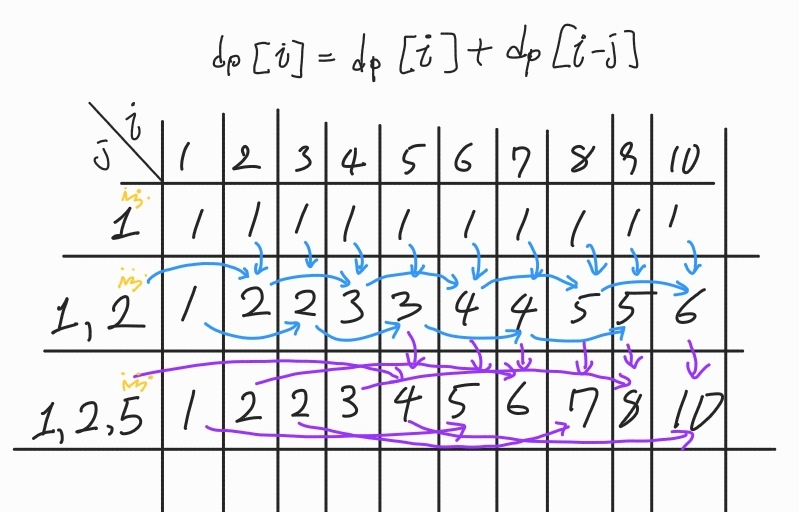 dp[i] = dp[i] + dp[i-j]
i
j 1 2 3 4 5 6 7 8 9 10
1 1 1 1 1 1 1 1 1 1 1
1,2 1 2 2 3 3 4 4 5 5 6
1,2,5 1 2 2 3 4 5 6 7 8 10